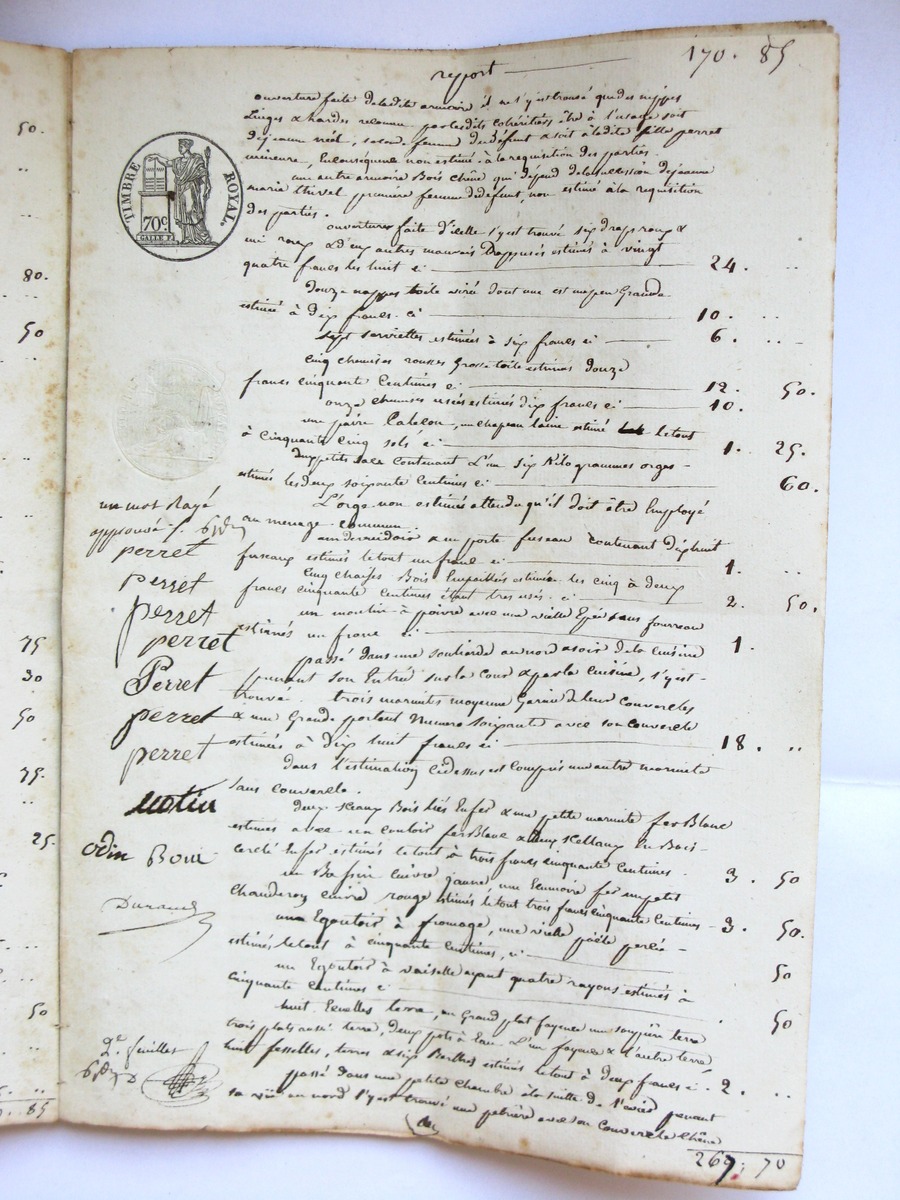 170. 85
report
ouverture faite de ladite armoire il ne s'y est trouvé que des nippes
Linges & hardes reconnu par lesdits cohéritiers être à l'usage soit
de jeanne réét, seconde femme du défunt & soit à ladite fille perret
mineure, En conséquence non estimé à la requisition des parties
une autre armoire Bois chêne qui dépend de la succession de jeanne
marie thivel première femme du défunt, non estimé à la requisition
des parties.
ouverture faite d'icelle s'y est trouvé six draps roux &
mi roux & deux autres mauvais Drappusés estimés à vingt
quatre francs les huit ci 24. ..
Douze nappes toile dont une est un peu Grande
estimé à Dix francs ci 10. ..
sept serviettes estimées à six francs ci 6. ..
cinq chemises rousses Grosse toile estimés douze
francs cinquante Centimes ci 12. 50.
onze chemises usées estimés dix francs ci 10.
une paire Caleçon, un chapeau laine estimé le tout
à Cinquante Cinq sols ci 1. 25.
deux petits sacs contenant L'un six Kilogrammes orge
estimés les deux soixante Centimes ci 60.
L'orge non estimé attendu qu'il doit être Employé
au menage commun.
un devidoir & un porte fuseau contenant dix huit
fuseaux estimés le tout un franc ci 1. ..
Cinq chaises Bois Empaillés estimées les cinq à deux
francs cinquante Centimes étant tres usés. ci 2. 50.
un moulin à poivre avec une vieille Epée sans fourreau
estimés un franc ci 1.
passé dans une souliarde au nord & soir de la cuisine
prenant son Entrée sur la cour & par la cuisine, s'y est
trouvé trois marmites moyenne Garnie de leur couvercles
& une Grande portant Numero soixante avec son couvercle
estimées à Dix huit francs ci 18. ..
dans l'estimation ci dessus est compris une autre marmite
sans couvercle.
deux sceaux Bois liés En fer & une petite marmite fer Blanc
estimés avec un couloir fer Blanc & deux En Bois
cerclé En fer estimés le tout à trois francs cinquante Centimes 3. 50
un Bassin cuivre jaune, une Ecumoire fer un petit
chauderon cuivre rouge estimés le tout trois francs cinquante Centimes 3. 50.
une Egoutoir à fromage, une vielle poële percée
estimés le tout à cinquante Centimes, ci 50
un Egoutoir à vaiselle ayant quatre rayons estimés à
cinquante Centimes ci 50
huit Ecuelles terre, un Grand plat fayence une soupière terre
trois plats terre, deux pots à Eau L'un fayence & l'autre terre
huit fesselles, terres & six Berthes estimés le tout à deux francs ci 2. ..
passé dans une petite chambre à la suite de prenant
sa vüe au nord s'y est trouvé une petrière avec son Couvercle chêne
269. 70
TIMBRE ROYAL
70c
GALLE F.
un mot Rayé
approuvé
perret
perret
perret
perret
Perret
perret
perret
odin Boiii
Durand
2e feuillet
50.
80.
50
75
30
50
75.
25.
50
85